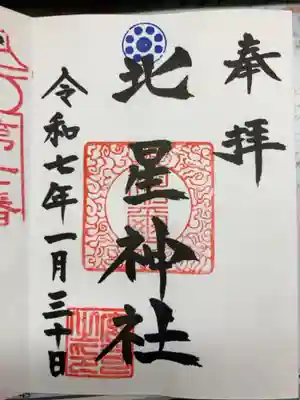 奉拝
北星神社
令和七年一月三十日